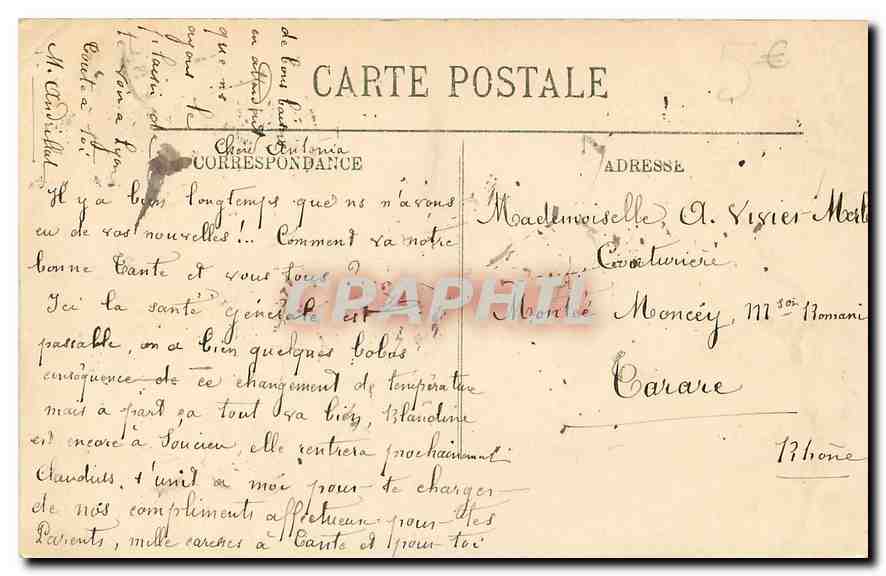 CARTE POSTALE
CORRESPONDANCE
ADRESSE
5€
Chère Antonia
Il y a bien longtemps que ns n'avons
eu de vos nouvelles!.. Comment va notre
bonne Tante et vous tous?
Ici la santé générale est
passable, on a bien quelques bobos
conséquence de ce changement de température
mais à part ça tout va bien, Blandine
est encore à Soucieu, elle rentrera prochainement
Claudius, s'unit à moi pour te charger
de nos compliments affectueux pour tes
Parents, mille caresses à Tante et pour toi
de bons baisers
en attendant
que ns
ayons le
plaisir de
te voir à Lyon
Toute à toi
M. Andrillat
Mademoiselle, A. Vivier-Merle
Couturière
Montée Moncey, Mson Romani
Tarare
Rhône
CPAPHIL